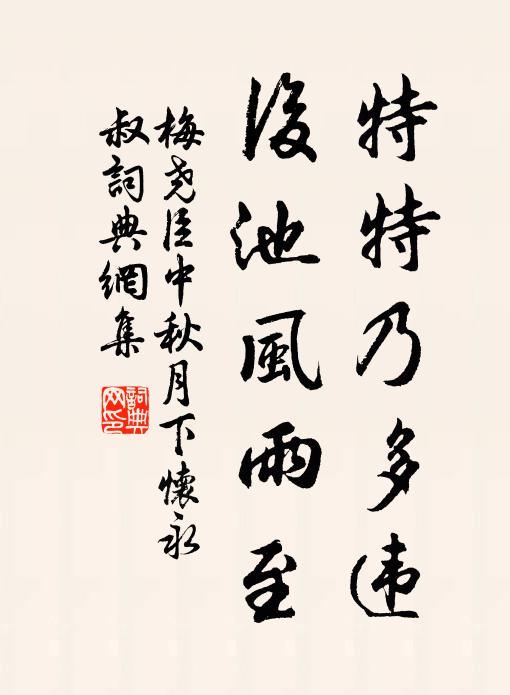 特特乃多违
後池風雨至
梅尧臣中秋月下懷永
叔詞典網集
詞典
网印